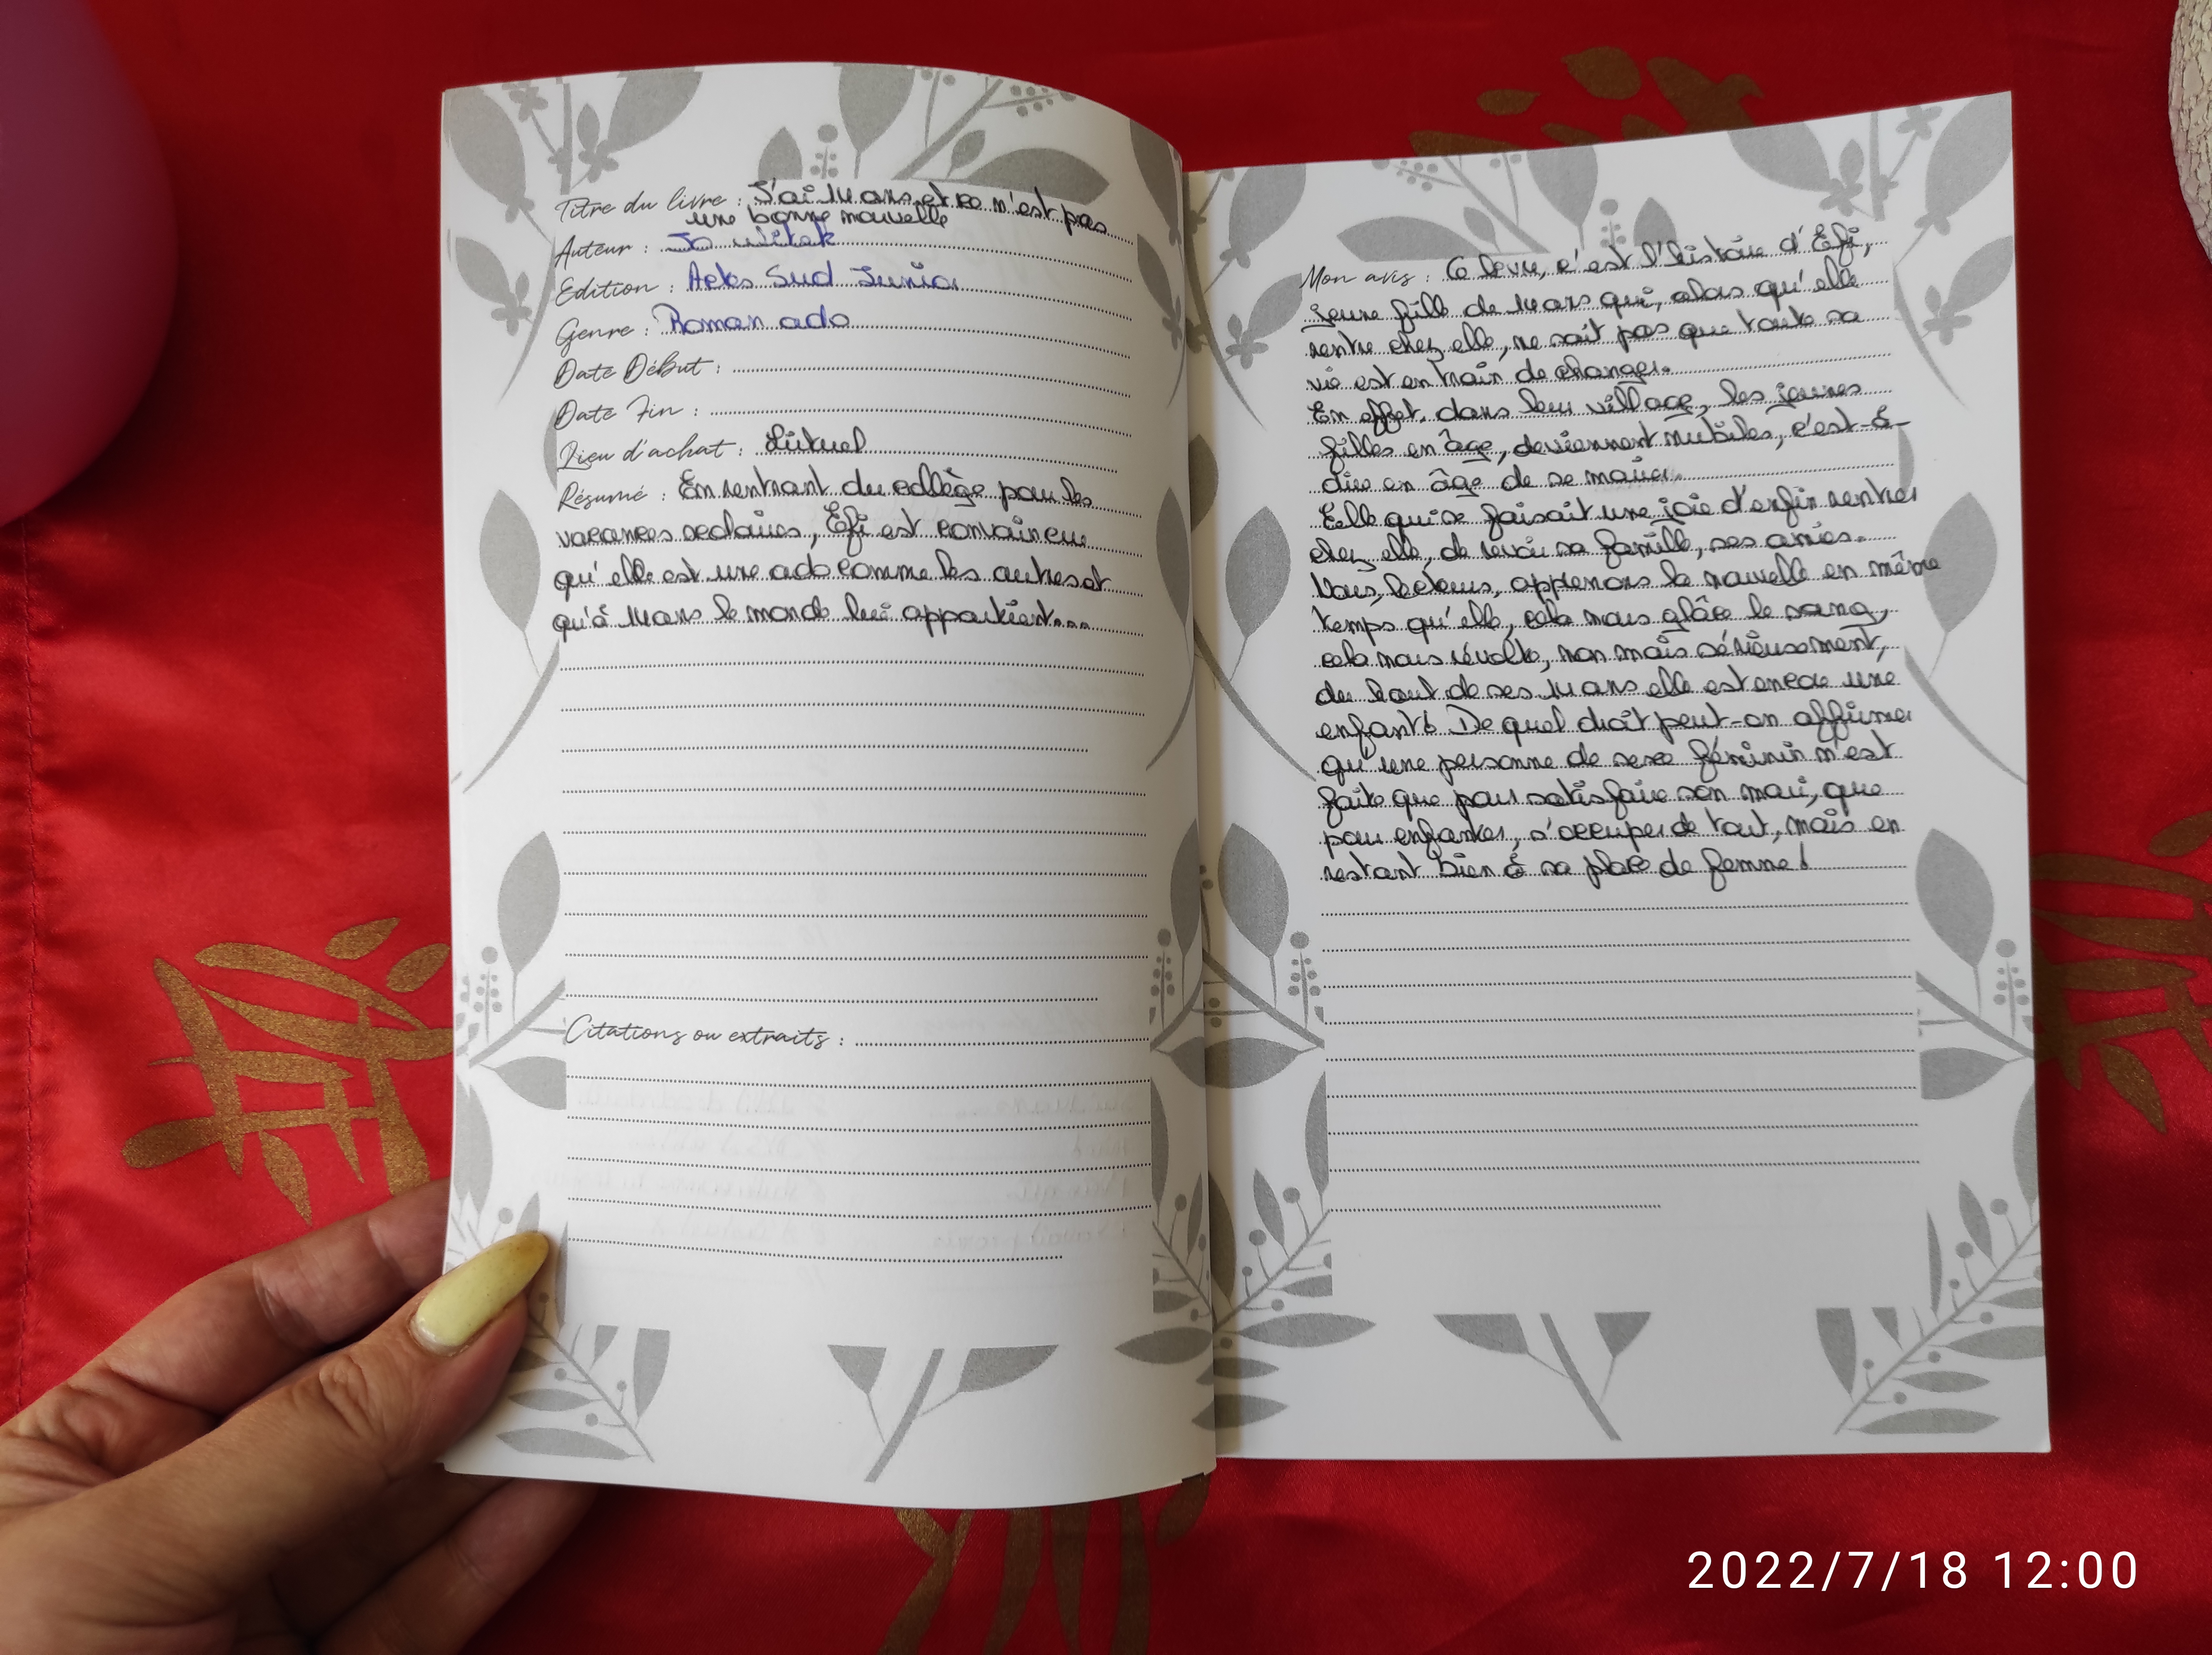 Titre du livre : J'ai 14 ans et ce n'est pas
une bonne nouvelle
Auteur : Jo Witek
Edition : Actes Sud Junior
Genre : Roman ado
Date Début :
Date Fin :
Lieu d'achat :
Résumé : En rentrant du collège pour les
vacances scolaires, Efi est convaincue
qu'elle est une ado comme les autres et
qu'à 14 ans le monde lui appartient...
Citations ou extraits :
Mon avis : Ce livre, c'est l'histoire d'Efi,
jeune fille de 14 ans qui, alors qu'elle
rentre chez elle, ne sait pas que toute sa
vie est en train de changer.
En effet, dans leur village, les jeunes
filles en âge, deviennent nubiles, c'est-à-
dire en âge de se marier.
Elle qui se faisait une joie d'enfin rentrer
chez elle, de revoir sa famille, ses amies.
Nous, lecteurs, apprenons la nouvelle en même
temps qu'elle, cela nous glâce le sang,
cela nous révolte, non mais sérieusement,
du haut de ses 14 ans elle est encore une
enfant! De quel droit peut-on affirmer
qu'une personne de sexe féminin n'est
faite que pour satisfaire son mari, que
pour enfanter, s'occuper de tout, mais en
restant bien à sa place de femme!
2022/7/18 12:00